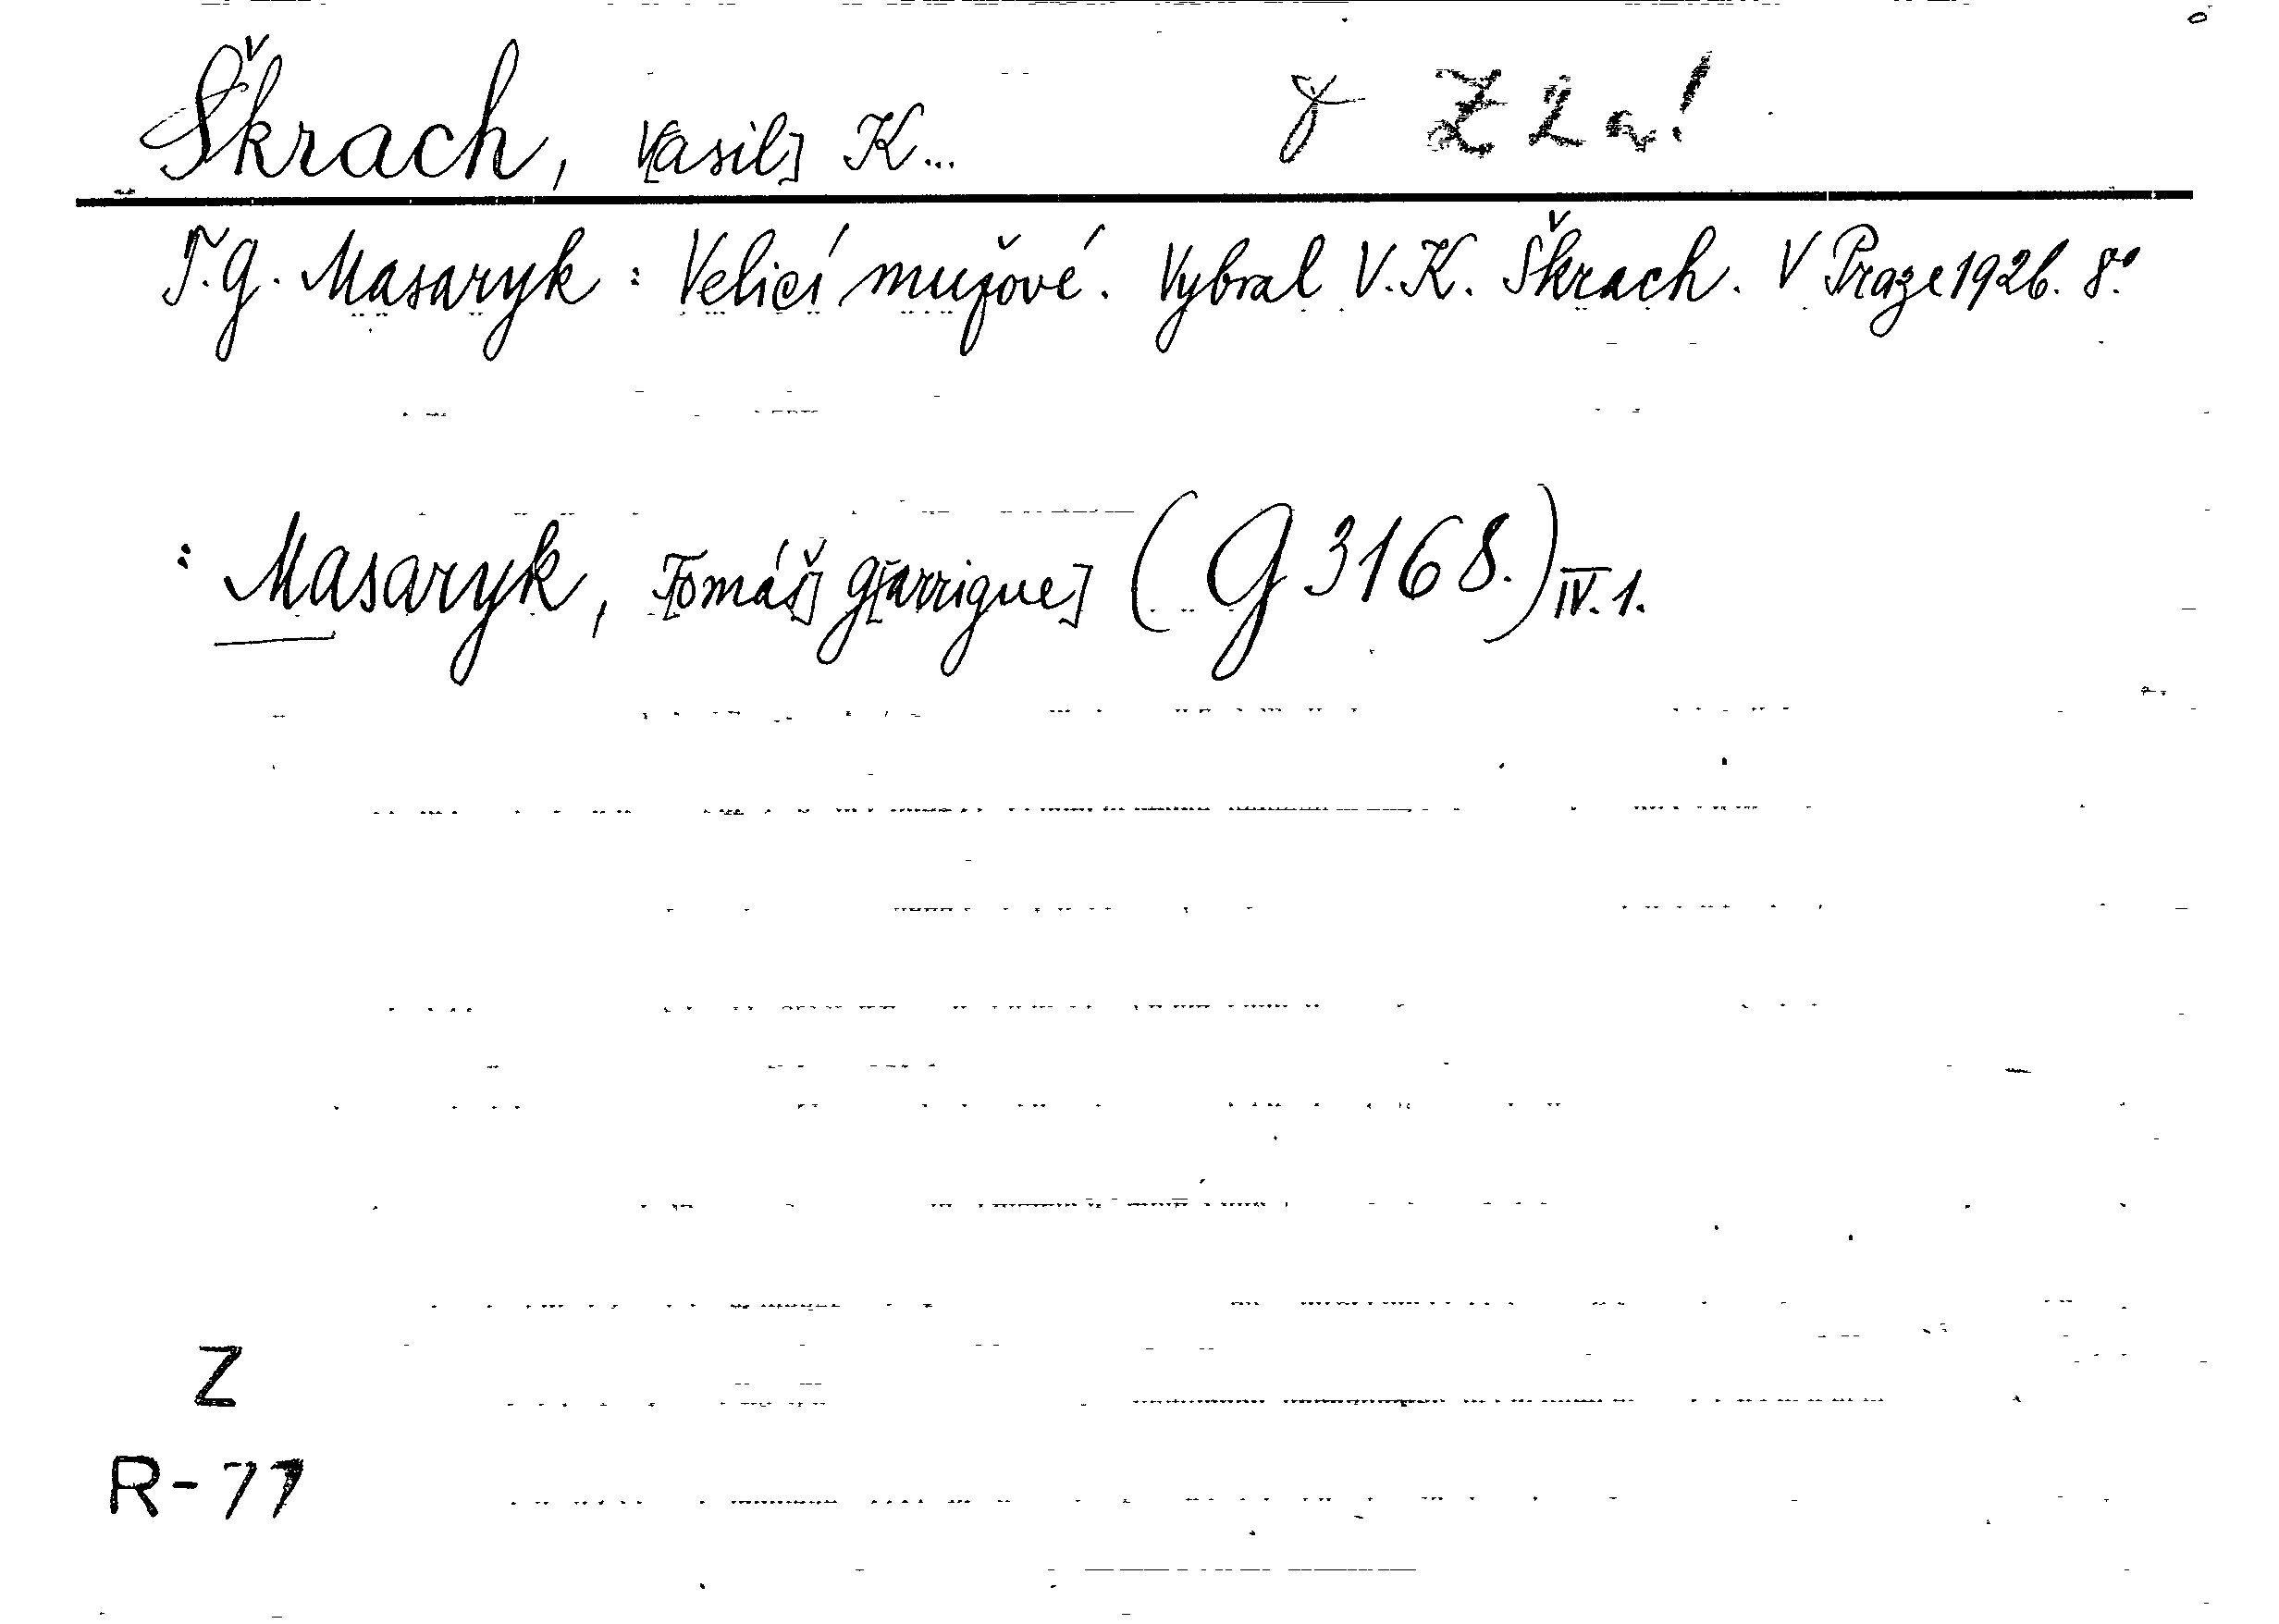 Škrach, V[asil] K... Z 2 a!
T. G. Masaryk: Velicí mužové. Vybral V. K. Škrach. V Praze 1926. 8°.
: Masaryk, T[omáš] G[arrigue] (G 3168.) IV. 1.
Z
R-77